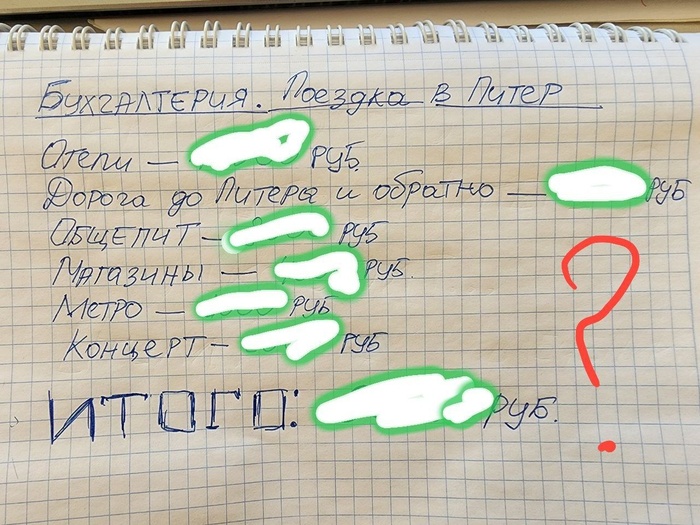 Бухгалтерия. Поездка в Питер
Отели — РУБ.
Дорога до Питера и обратно — РУБ
Общепит — РУБ
Магазины — РУБ.
Метро — РУБ
Концерт — РУБ
ИТОГО: РУБ.
?